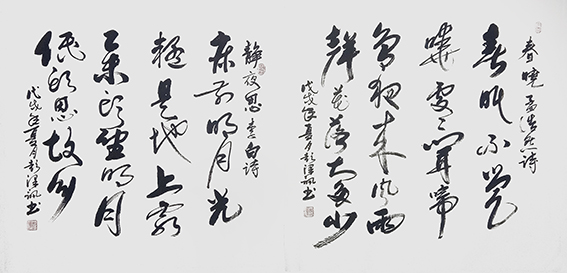 春曉 孟浩然诗
春眠不覺
曉處々聞啼
鳥夜来風雨
聲花落知多少
戊戌年夏月彭澤書
静夜思 李白诗
床前明月光
疑是地上霜
举头望明月
低头思故乡
戊戌年夏月彭澤書